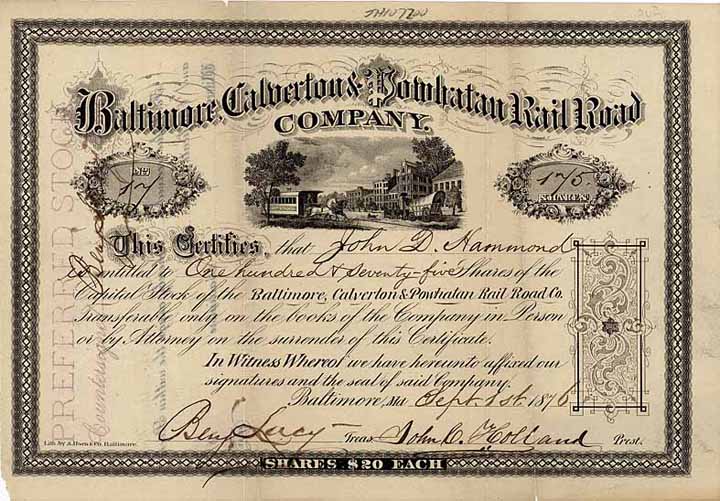 Baltimore, Calverton & Powhatan Rail Road
COMPANY.
No.
17
175.
SHARES
PREFERRED STOCK
This Certifies, that John D. Hammond
is entitled to One hundred & seventy-five Shares of the
Capital Stock of the Baltimore, Calverton & Powhatan Rail Road Co.
Transferable only on the books of the Company in Person
or by Attorney on the surrender of this Certificate.
In Witness Whereof we have hereunto affixed our
signatures and the seal of said Company.
Baltimore, Md Sept. 1st 1876
Benj Lucy Treas. John C. Holland Prest.
Lith. by A. Hoen & Co. Baltimore.
SHARES $20 EACH